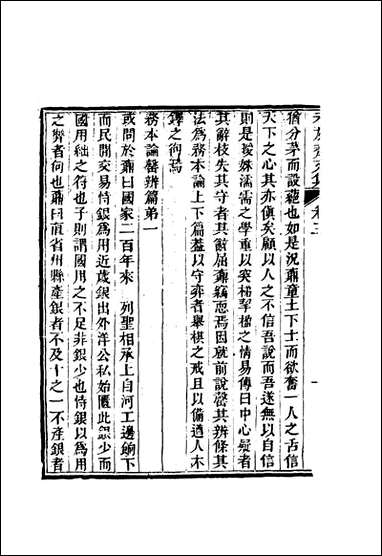 猶分茅而設蕝也如是況鼒童土下士而欲奮一人之舌信
天下之心其亦傎矣顧以人之不信吾說而吾遂無以自信
則是媛姝濡需之學重以突梯挐楹之情易傳曰中心疑者
其辭枝失其守者其辭屈鼒竊恧焉因就前說罄其辨條其
法爲務本論上下篇蓋以守弈者舉棋之戒且以備遒人木
鐸之徇焉
務本論罄辨篇弟一
或問於鼒曰國家二百年來 列聖相承上自河工邊餉下
而民閒交易恃銀爲用近歲銀出外洋公私始匱此銀少而
國用絀之符也子則謂國用之不足非銀少也恃銀以爲用
之弊者何也鼒曰直省州縣產銀者不及十之一不產銀者